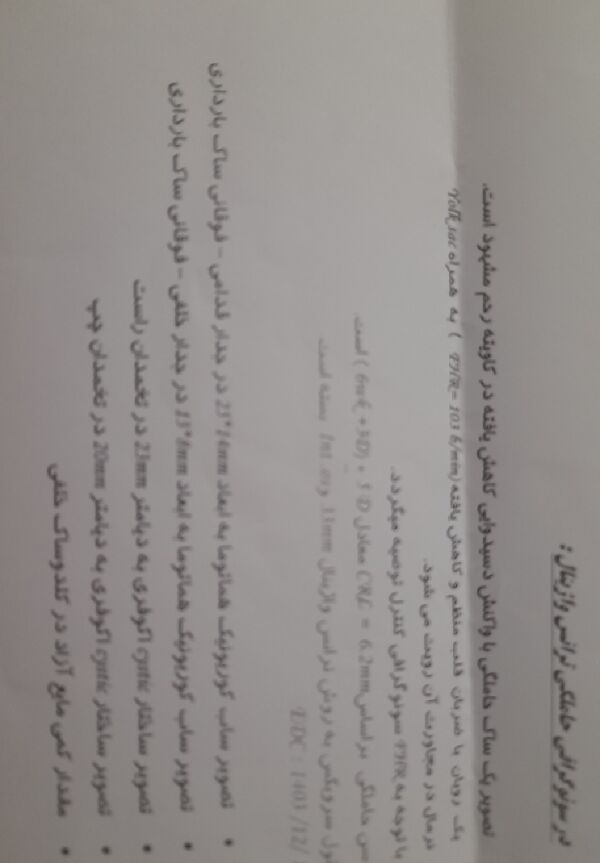 در سونوگرافی حاملگی ترانس واژینال :
تصویر یک ساک حاملگی با واکنش دسیدوایی کاهش یافته در کاویته رحم مشهود است.
یک رویان با ضربان قلب منظم و کاهش یافته (FHR= 103 b/min ) به همراه Yolk sac
نرمال در مجاورت آن رویت می شود.
با توجه به FHR سونوگرافی کنترل توصیه میگردد.
سن حاملگی براساس CRL = 6.2mm معادل (6w+3D) ± 5 D است.
طول سرویکس به روش ترانس واژینال 33mm و Int.os بسته است
EDC : 1403 /12/
• تصویر ساب کوریونیک هماتوما به ابعاد 23*14mm در جدار قدامی - فوقانی ساک بارداری
• تصویر ساب کوریونیک هماتوما به ابعاد 13*8mm در جدار خلفی - فوقانی ساک بارداری
• تصویر ساختار cystic اکوفری به دیامتر 23mm در تخمدان راست
• تصویر ساختار cystic اکوفری به دیامتر 20mm در تخمدان چپ
• مقدار کمی مایع آزاد در کلدوساک خلفی